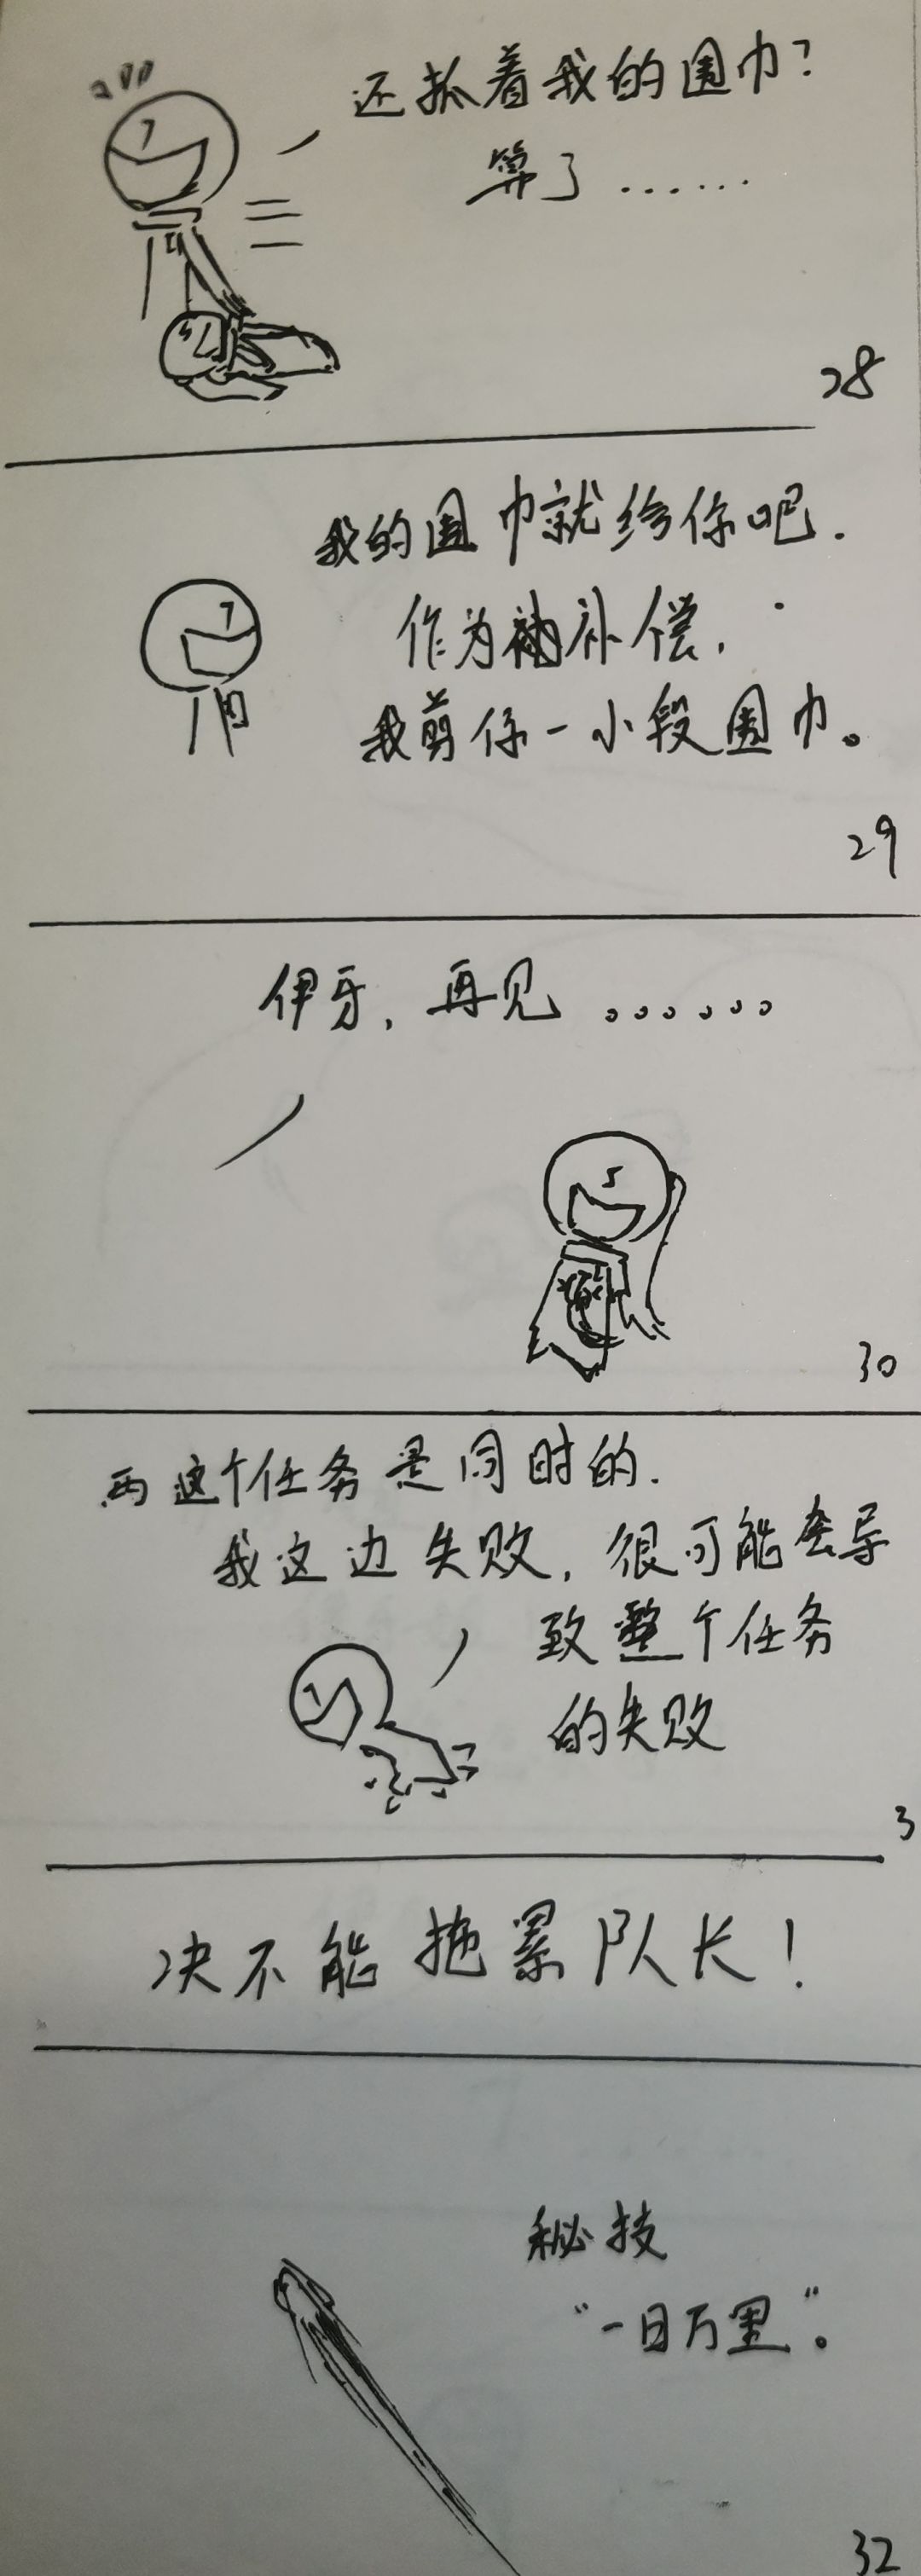 还抓着我的围巾?
算了......
28
我的围巾就给你吧.
作为补偿,
我剪你一小段围巾。
29
伊牙,再见。。。。。。
30
两这个任务是同时的.
我这边失败,很可能会导
致整个任务
的失败
3
决不能拖累队长!
秘技
“一日万里”。
32